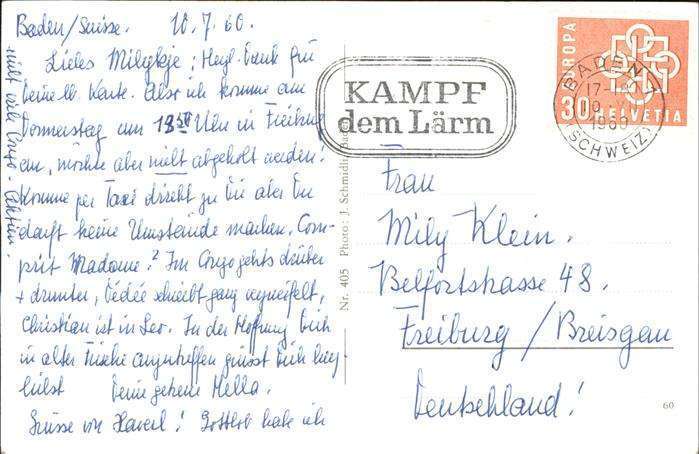 Baden/Suisse. 10.7.60.
Liebes Milykje! Herzl. Dank für
Deine lb. Karte. Also ich komme am
Donnerstag um 18 50 Uhr in Freiburg
an, möchte aber nicht abgeholt werden.
Komme per Taxi direkt zu Dir aber Du
darfst keine Umstände machen. Com-
pris Madame? Im Congo gehts drüber
+ drunter, Dédée schreibt ganz verzweifelt,
Christian ist in Leo. In der Hoffnung Dich
in alter Frische anzutreffen grüsst Dich herz-
lichst Deine getreue Hella.
Grüsse von Haverl! Gottlob habe ich
nicht viele Congo-Aktien.
Nr. 405 Photo: J. Schmidli,
KAMPF
dem Lärm
EUROPA
30 HELVETIA
BADEN 1
17-
10
1960
(SCHWEIZ)
Frau
Mily Klein.
Belfortstrasse 48.
Freiburg/Breisgau
Deutschland!
60